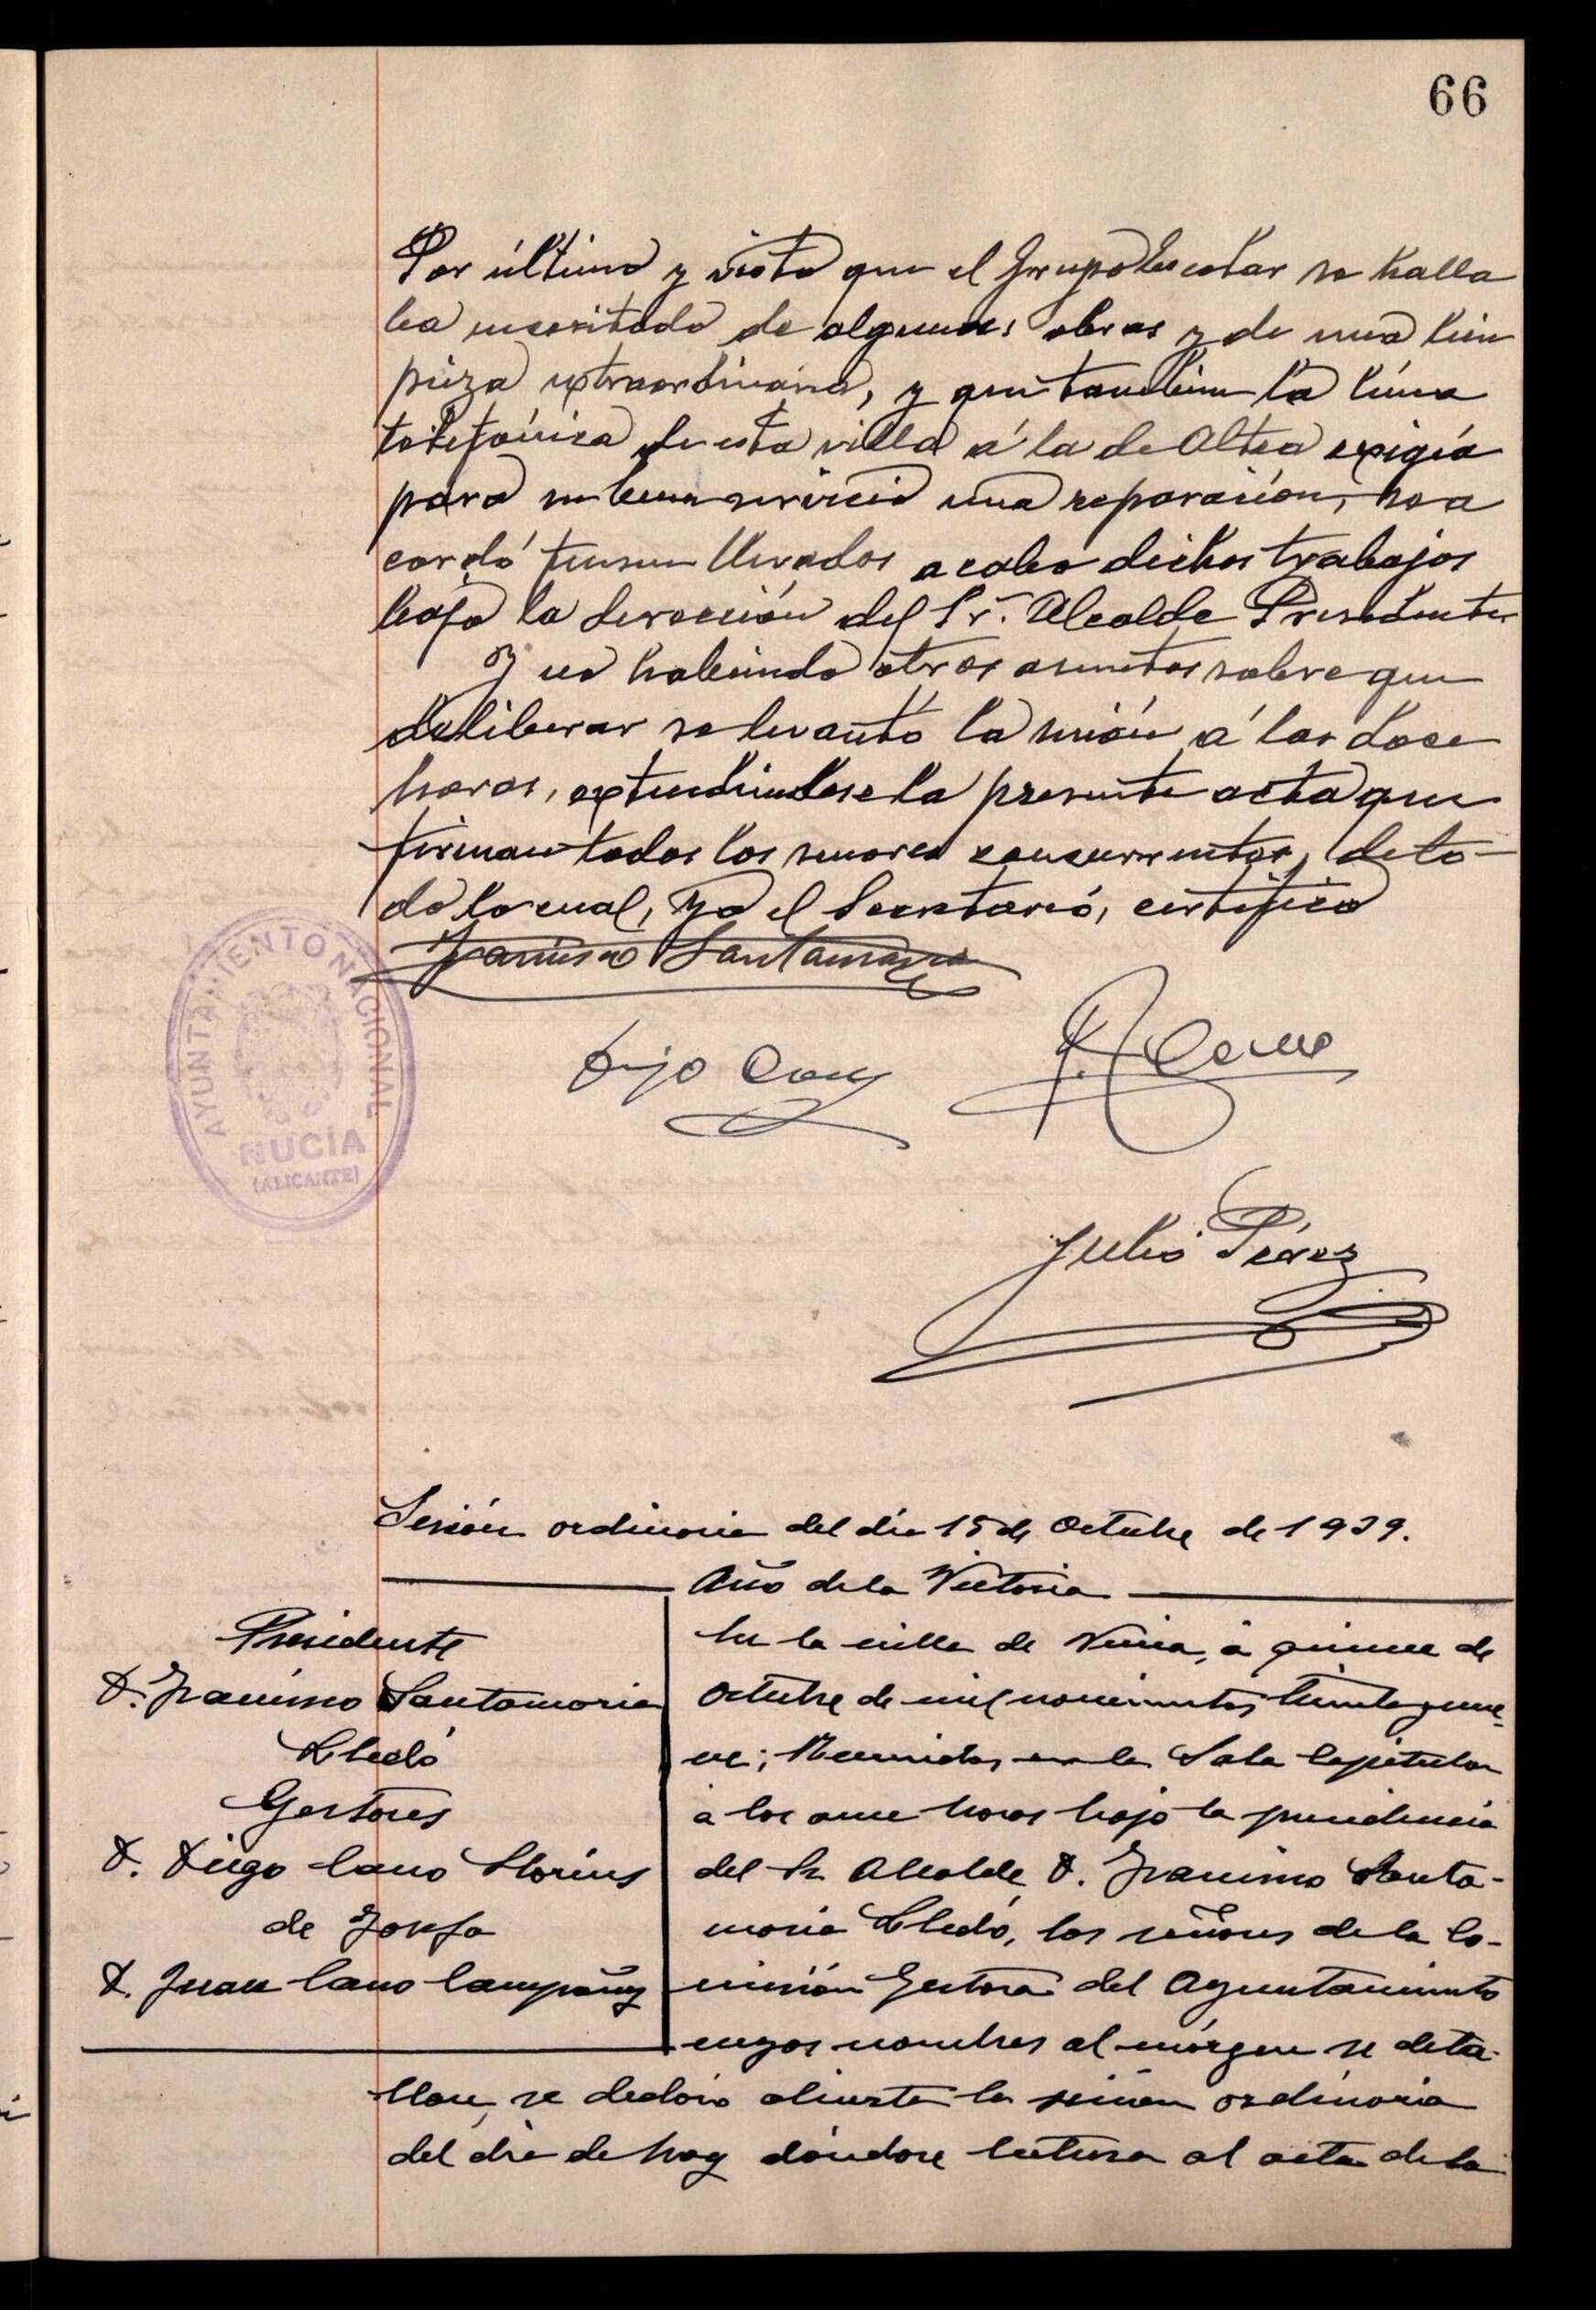 66
Por último y visto que el Grupo Escolar se halla
ba necesitado de algunas obras y de una lim
pieza extraordinaria, y que tambien la línea
telefónica de esta villa á la de Altea exigía
para su buen servicio una reparación, se a
cordó fuesen llevados a cabo dichos trabajos
bajo la dirección del Sr. Alcalde Presidente
Y no habiendo otros asuntos sobre que
deliberar se levantó la sesión á las doce
horas, extendiéndose la presente acta que
firman todos los señores concurrentes, de to-
do lo cual, yo el Secretario, certifico
Francisco Santamaria
Diego Cano
J. Cano
AYUNTAMIENTO NACIONAL
NUCIA
(ALICANTE)
Julio Pérez
Sesión ordinaria del día 15 de Octubre de 1939.
Año de la Victoria
Presidente
D. Francisco Santamaria
Lledó
Gestores
D. Diego Cano Llorens
de Josefa
D. Juan Cano Campany
En la villa de Nucia, á quince de
Octubre de mil novecientos treinta y nue-
ve; Reunidos en la Sala Capitular
á las once horas bajo la presidencia
del Sr. Alcalde, D. Francisco Santa-
maria Lledó, los señores de la Co-
misión Gestora del Ayuntamiento
cuyos nombres al márgen se deta-
llan, se declaró abierta la sesión ordinaria
del día de hoy dándose lectura al acta de la